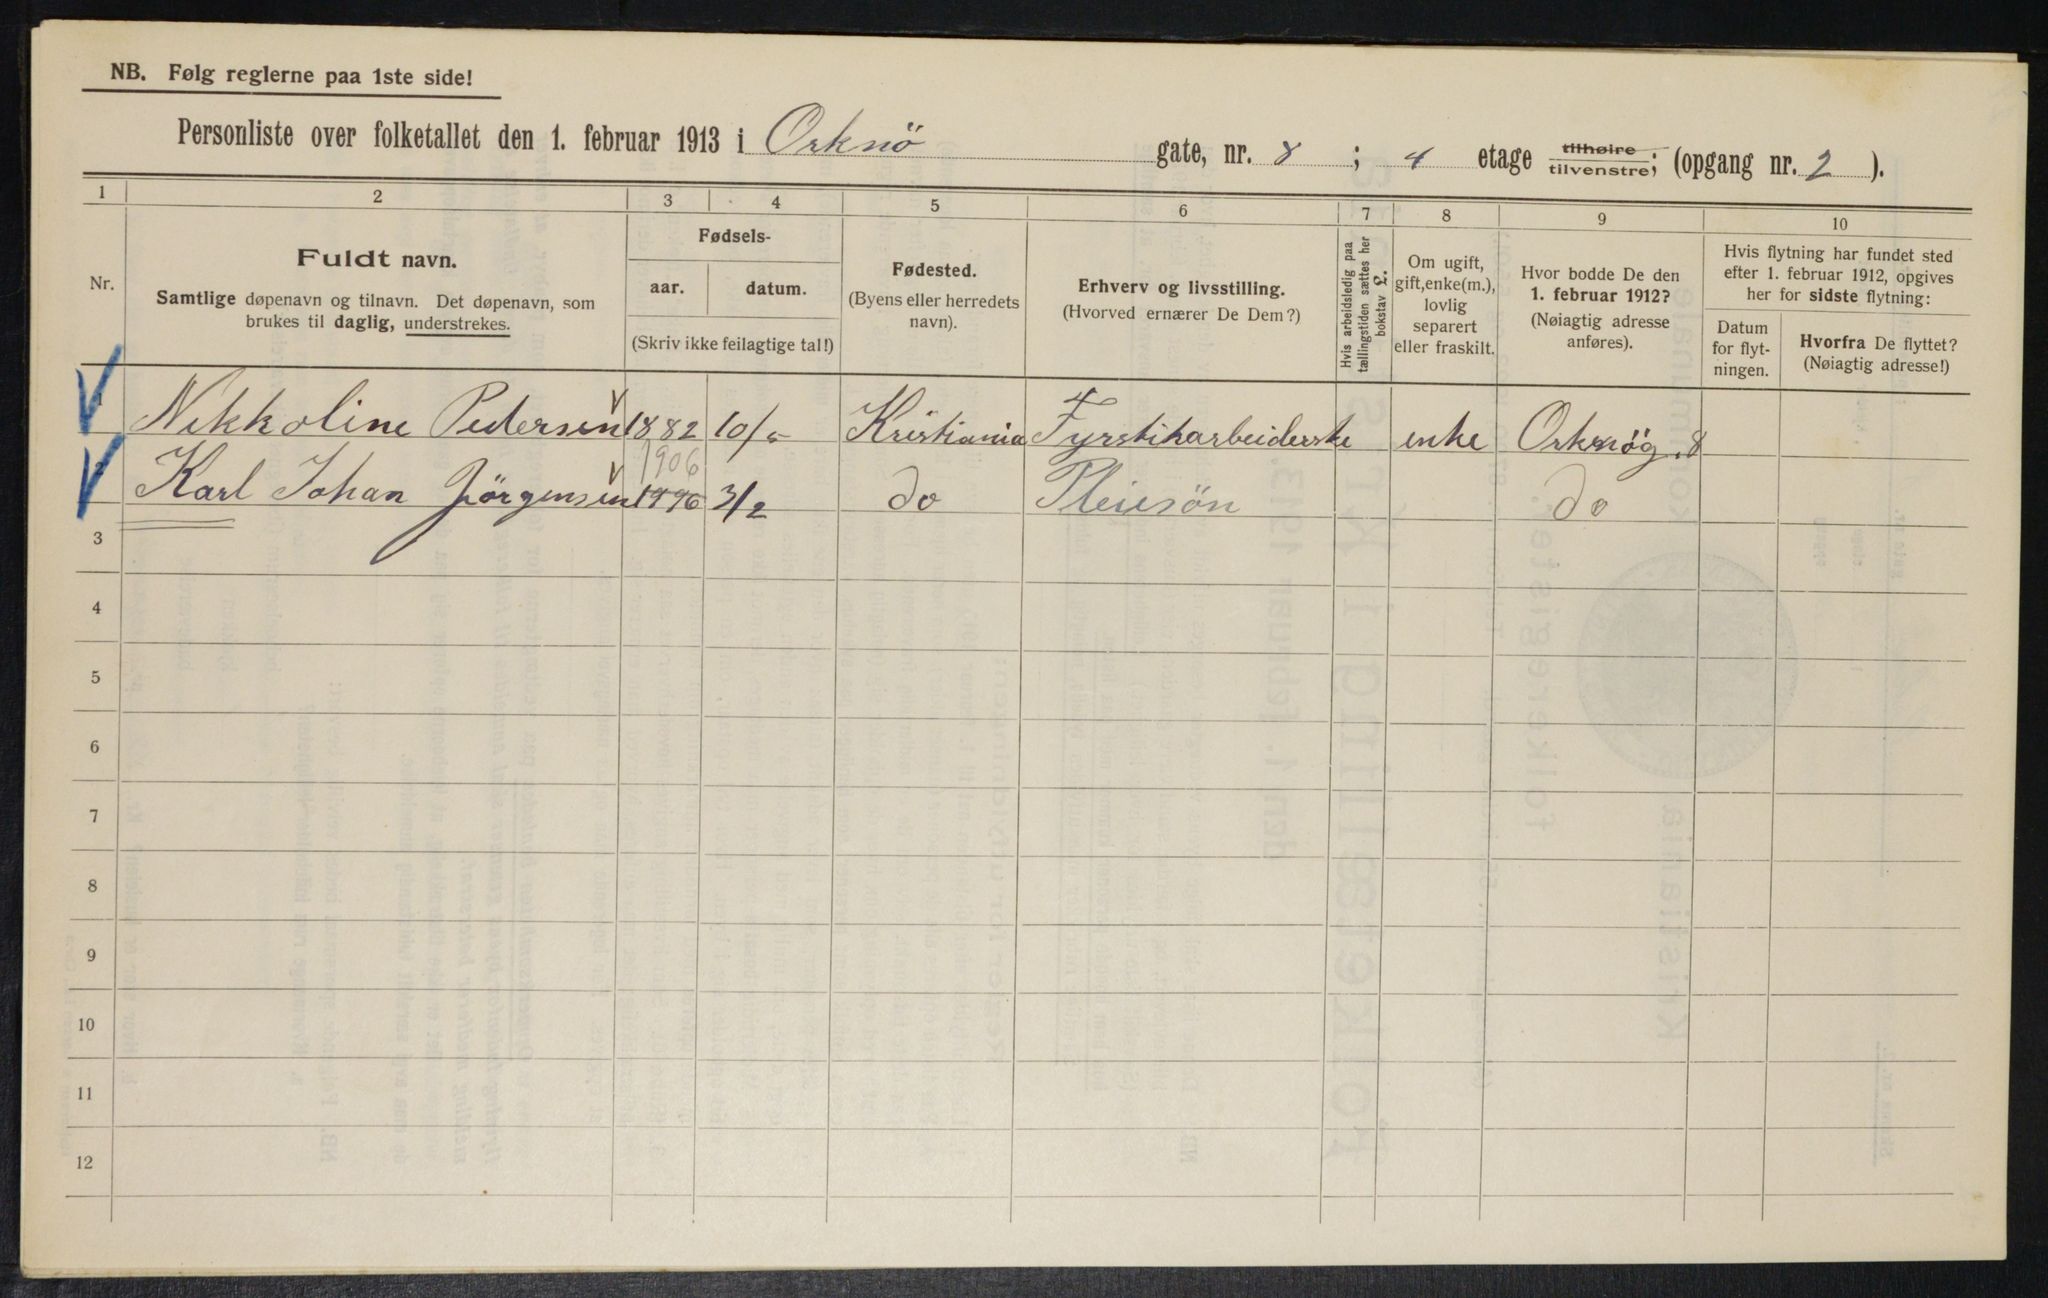 NB. Følg reglerne paa 1ste side!
Personliste over folketallet den 1. februar 1913 i Orknö gate, nr. 8 ; 4 etage tilhøire tilvenstre; (opgang nr. 2 ).
1 2 3 4 5 6 7 8 9 10
Nr.
Fuldt navn.
Samtlige døpenavn og tilnavn. Det døpenavn, som
brukes til daglig, understrekes.
Fødsels-
aar. datum.
(Skriv ikke feilagtige tal!)
Fødested.
(Byens eller herredets
navn).
Erhverv og livsstilling.
(Hvorved ernærer De Dem?)
Hvis arbeidsledig paa
tællingstiden sættes her
bokstav £.
Om ugift,
gift, enke(m.),
lovlig
separert
eller fraskilt.
Hvor bodde De den
1. februar 1912?
(Nøiagtig adresse
anføres).
Hvis flytning har fundet sted
efter 1. februar 1912, opgives
her for sidste flytning:
Datum
for flyt-
ningen.
Hvorfra De flyttet?
(Nøiagtig adresse!)
1 Nikkoline Pedersen 1882 10/ Kristiania Fyrstikarbeiderske enke Orknög. 8
1906
2 Karl Johan Jörgensen 3/2 do Pleiesön do
3
4
5
6
7
8
9
10
11
12